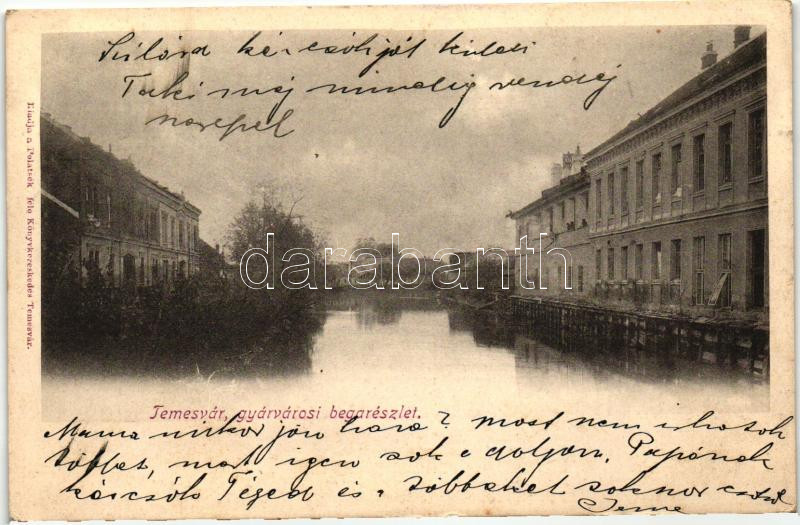 Szilárd kézcsókját küldi
Tuki maj mindig vendéj
Kiadja a Polatsek féle Könyvkereskedés Temesvár.
darabanth
Temesvár, gyárvárosi begarészlet.
Mama mikor jön haza? most nem irhatok
többet, mert igen sok a dolgom. Papának
kézcsók Téged és a többieket sokszor csókol